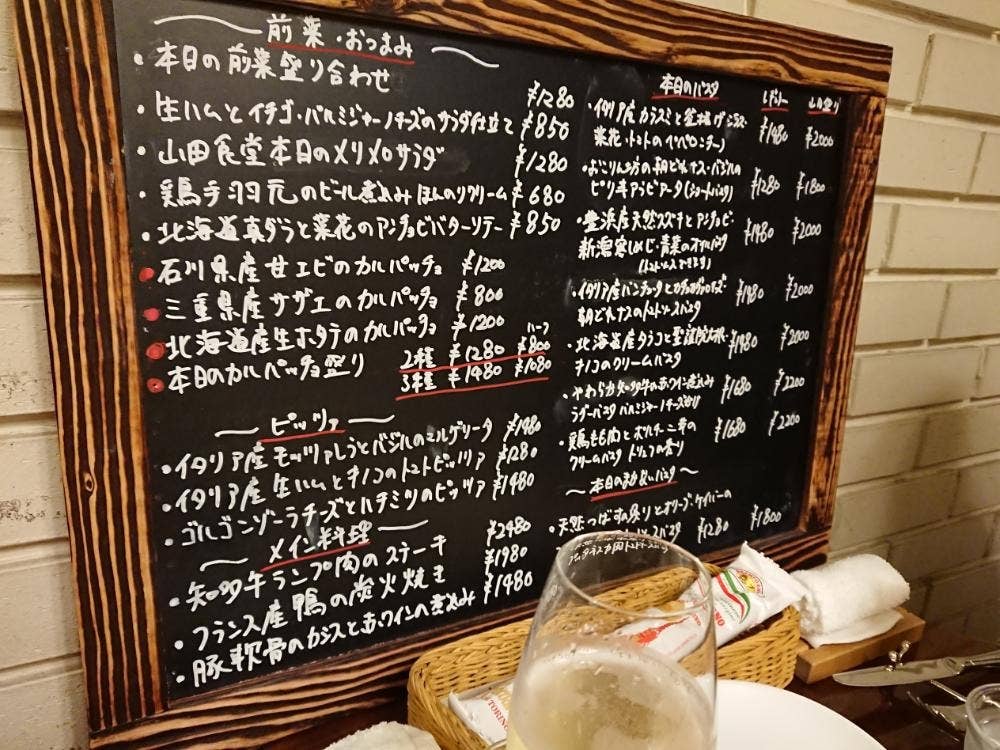 前菜・おつまみ
・本日の前菜盛り合わせ ¥1280
・生ハムとイチゴ・パルミジャーノチーズのサラダ仕立て ¥850
・山田食堂本日のメリメロサラダ ¥1280
・鶏手羽元のビール煮込みほんのりクリーム ¥680
・北海道真ダラと菜花のアンチョビバターソテー ¥850
・石川県産甘エビのカルパッチョ ¥1200
・三重県産サザエのカルパッチョ ¥800
・北海道産生ホタテのカルパッチョ ¥1200
ハーフ
・本日のカルパッチョ盛り 2種 ¥1280 ¥800
3種 ¥1480 ¥1080
ピッツァ
・イタリア産モッツァレラとバジルのマルゲリータ ¥1480
・イタリア産生ハムとキノコのトマトピッツァ ¥1280
・ゴルゴンゾーラチーズとハチミツのピッツァ ¥1480
メイン料理
・知多牛ランプ肉のステーキ ¥2480
・フランス産鴨の炭火焼き ¥1980
・豚軟骨のカシスと赤ワインの煮込み ¥1480
本日のパスタ レギュラー 山盛り
・イタリア産カラスミと釜揚げ
菜花・トマトのペペロンチーノ ¥1480 ¥2000
朝どれナス・バジルの
ピリ辛アラビアータ(ショートパスタ) ¥1280 ¥1800
・豊浜産天然スズキとアンチョビ・
新潟寒しめじ・青菜のオイルパスタ ¥1480 ¥2000
・イタリア産パンチェッタと
朝どれナスのトマトソースパスタ ¥1480 ¥2000
・北海道産タラコと聖護院大根・
キノコのクリームパスタ ¥1480 ¥2000
・やわらか知多牛の赤ワイン煮込み
ラグーパスタ パルミジャーノチーズ ¥1680 ¥2200
・鶏もも肉とポルチーニ茸の
クリームパスタ トリュフの香り ¥1680 ¥2200
本日の パスタ
・天然つばすの炙りとオリーブ・ケイパーの
¥1280 ¥1800
TORINO